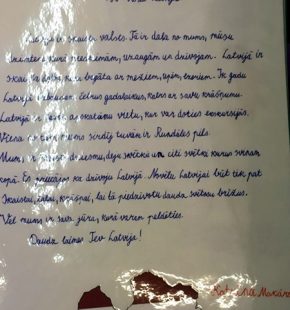 Latvija ir skaista valsts. Tā ir daļa no mums, mūsu
kurai piederam, uzaugām un dzīvojam. Latvijā ir
skaista daba, kura bagāta ar mežiem, upēm, ezeriem. Ik gadu
Latvijā četrus gadalaikus, katrs ar savu krāšņumu.
Latvijā ir daudz apskatāmu vietu, kur var doties ekskursijās.
Viena no tām mums sirdij tuvām ir Rundāles pils.
Mums ir dziesmu, deju svētki un citi svētki kurus svinam
kopā. Es priecājos ka dzīvoju Latvijā. Novēlu Latvijai būt tek pat
skaistai, lai tā piedzīvotu daudz svētku brīžus.
Vēl mums ir sava jūra, kurā varam peldēties.
Daudz laimes Tev Latvija!